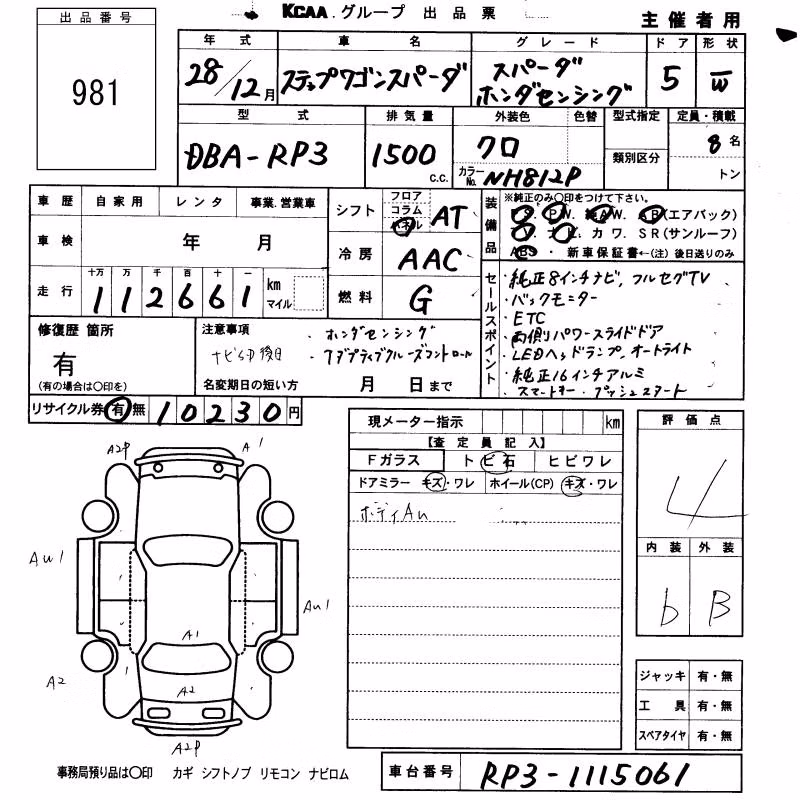 KCAA グループ 出品票
主催者用
出品番号
981
年式 車名 グレード ドア 形状
28/12月 ステップワゴンスパーダ スパーダ ホンダセンシング 5 W
型式 排気量 外装色 色替 型式指定 定員・積載
DBA-RP3 1500 c.c. クロ 8名
カラーNo. NH812P 類別区分 トン
車歴 自家用 レンタ 事業.営業車
車検 年 月
走行 十万 万 千 百 十 一 km マイル
112661
シフト フロア コラム パネル AT
冷房 AAC
燃料 G
装備品 ※純正のみ〇印をつけて下さい。
P.S. P.W. 純AW. AB(エアバック)
TV. ナビ. カワ. SR(サンルーフ)
ABS ・ 新車保証書←(注)後日送りのみ
セールスポイント
・純正8インチナビ, フルセグTV
・バックモニター
・ETC
・両側パワースライドドア
・LEDヘッドランプ, オートライト
・純正16インチアルミ
・スマートキー・プッシュスタート
修復歴 箇所
有
(有の場合は〇印を)
注意事項
・ホンダセンシング
ナビSD後日 ・アダプティブクルーズコントロール
名変期日の短い方 月 日まで
リサイクル券 有 無 10230円
現メーター指示 km
【査定員記入】
Fガラス トビ石 ヒビワレ
ドアミラー キズ・ワレ ホイール(CP) キズ・ワレ
ボディAu
評価点
4
内装 外装
b B
A2P A1
Au1
Au1
A1
A2 A2
A2P
ジャッキ 有・無
工具 有・無
スペアタイヤ 有・無
事務局預り品は〇印 カギ シフトノブ リモコン ナビロム
車台番号 RP3-1115061